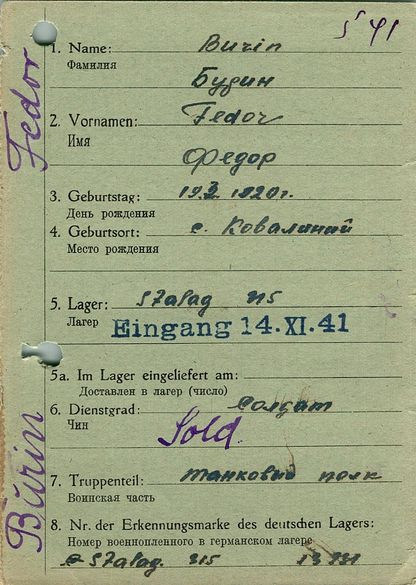 § 41
1. Name: Burin
Фамилия
Бурин
2. Vornamen: Fedor
Имя
Федор
3. Geburtstag: 1920г.
День рождения
4. Geburtsort: с. Ковалиний
Место рождения
5. Lager: Stalag 315
Лагерь
Eingang 14.XI.41
5a. Im Lager eingeliefert am:
Доставлен в лагер (число)
6. Dienstgrad: Солдат
Чин
Sold.
7. Truppenteil: танковий полк
Воинская часть
8. Nr. der Erkennungsmarke des deutschen Lagers:
Номер военнопленного в германском лагере
Stalag. 315
Fedor
Burin